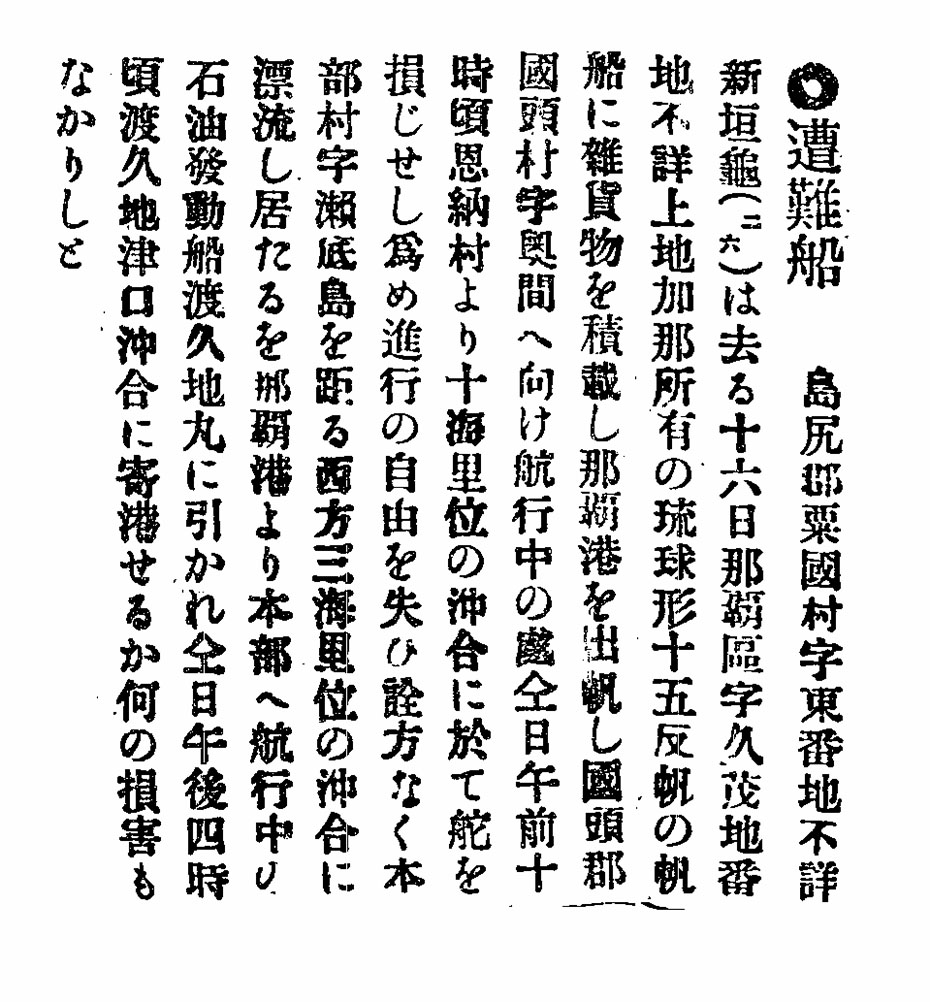 ◎遭難船　島尻郡粟國村字東番地不詳
新垣龜(二六)は去る十六日那覇區字久茂地番
地不詳上地加那所有の琉球形十五反帆の帆
船に雜貨物を積載し那覇港を出帆し國頭郡
國頭村字奥間へ向け航行中の處仝日午前十
時頃恩納村より十海里位の沖合に於て舵を
損じせし爲め進行の自由を失ひ詮方なく本
部村字瀬底島を距る西方三海里位の沖合に
漂流し居たるを那覇港より本部へ航行中の
石油發動船渡久地丸に引かれ仝日午後四時
頃渡久地津口沖合に寄港せるか何の損害も
なかりしと